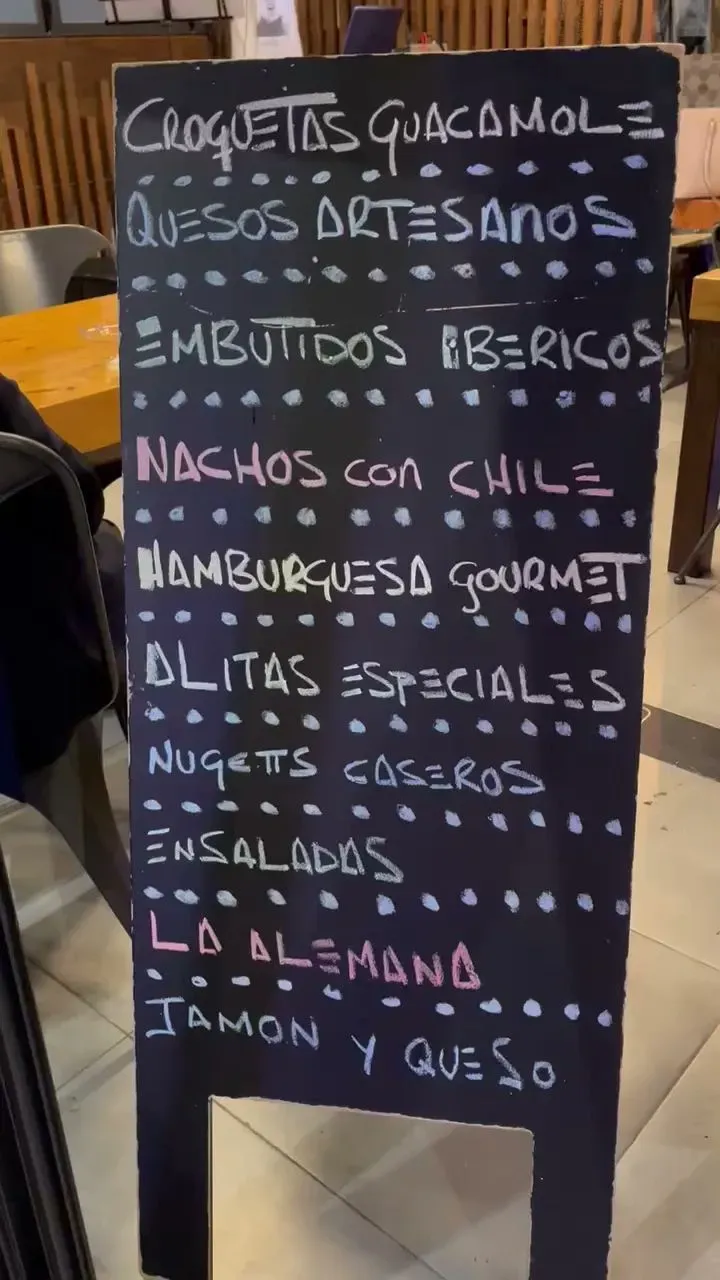 CROQUETAS GUACAMOLE
QUESOS ARTESANOS
EMBUTIDOS IBERICOS
NACHOS con CHILE
HAMBURGUESA GOURMET
ALITAS ESPECIALES
NUGETTS CASEROS
ENSALADAS
LA ALEMANA
JAMON Y QUESO